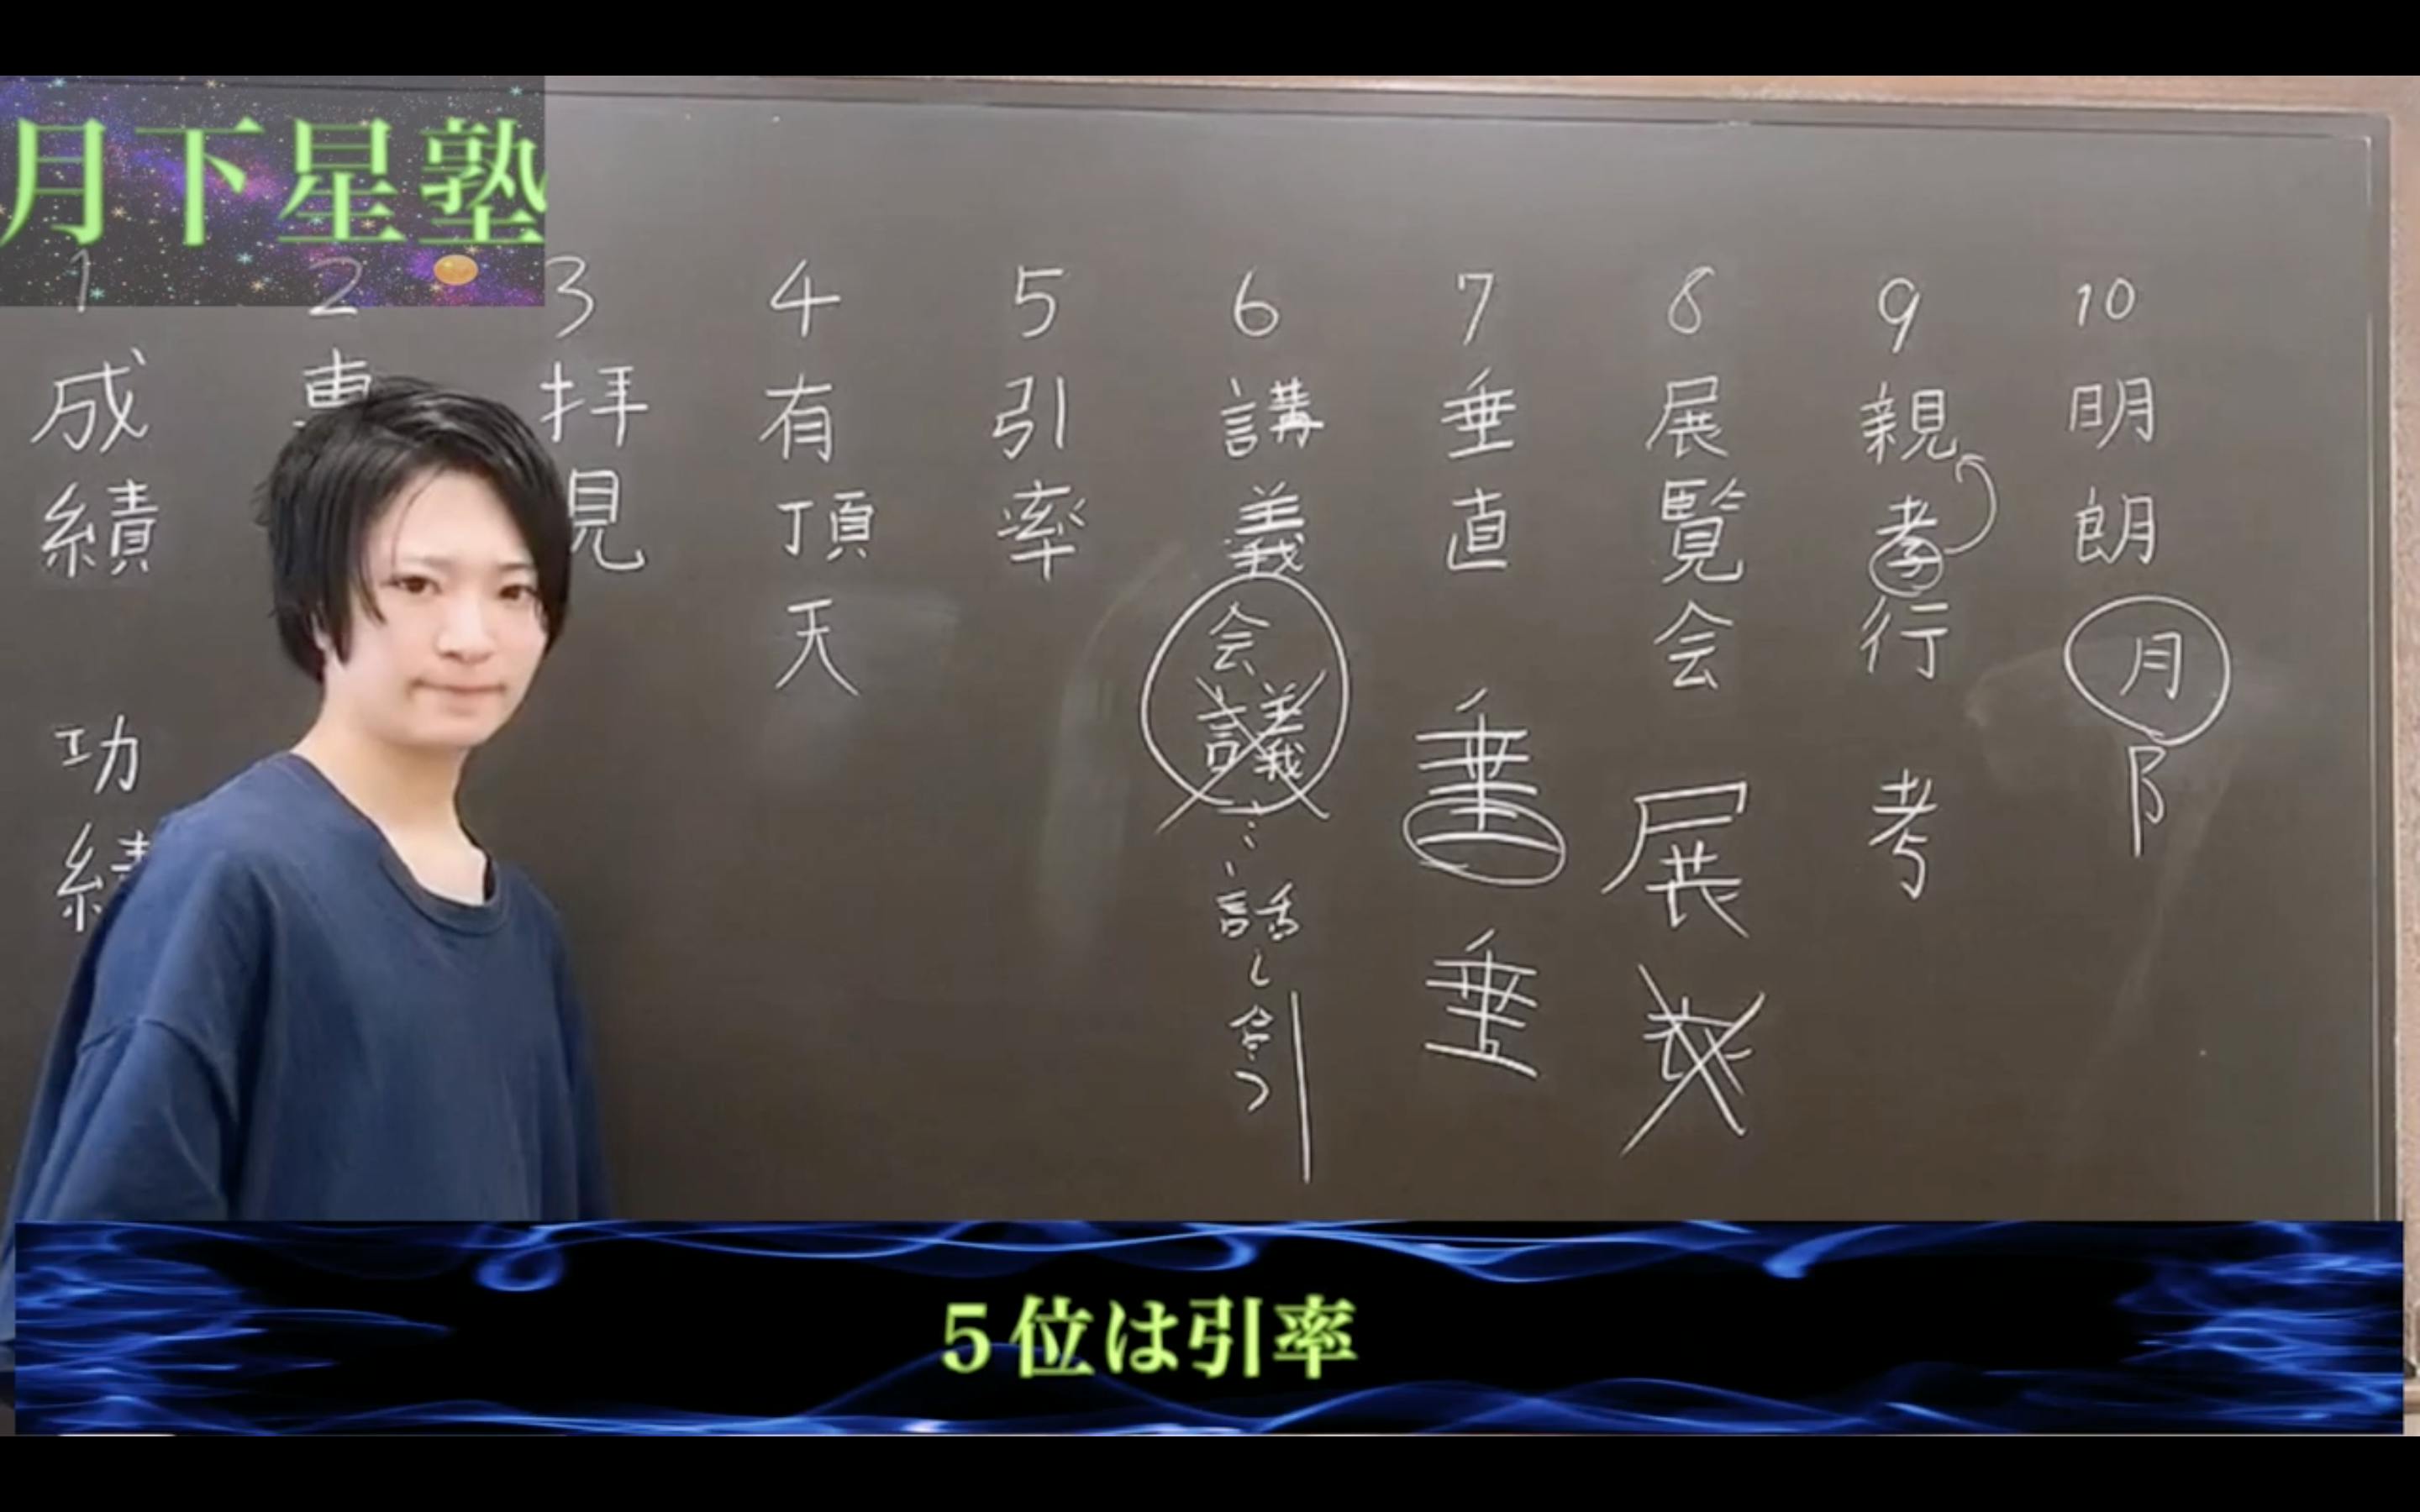 月下星塾
1
成績
功績
2
専
3
拝見
4
有頂天
5
引率
6
講義
会議
話し合う
7
垂直
垂
垂
8
展覧会
展
9
親孝行
考
10
明朗
月
阝
5位は引率